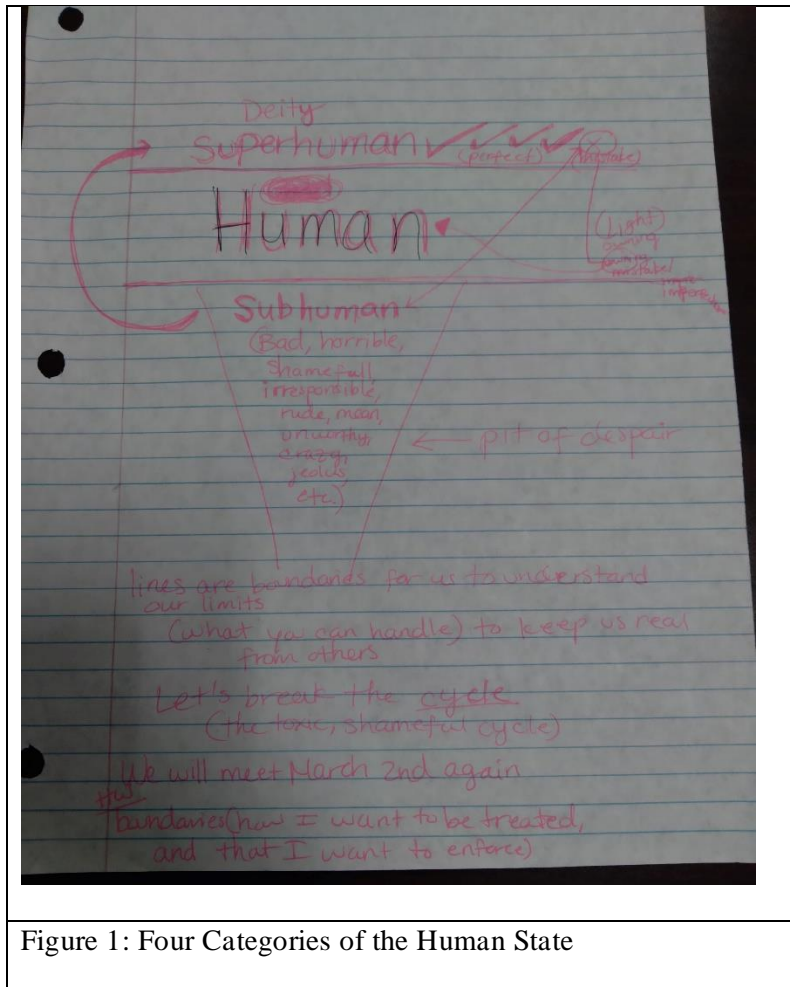 Deity
Superhuman (perfect) (mistake)
Human
(Light)
owning
mistake
Subhuman
(Bad, horrible,
shamefull
irresponsible,
rude, mean,
unworthy,
crazy,
jeolus,
etc.)
← pit of despair
lines are boundaries for us to understand
our limits
(what ya can handle) to keep us real
from others
Let's break the cycle
(the toxic, shameful cycle)
We will meet March 2nd again
HW
bundaries (how I want to be treated,
and that I want to enforce)
Figure 1: Four Categories of the Human State